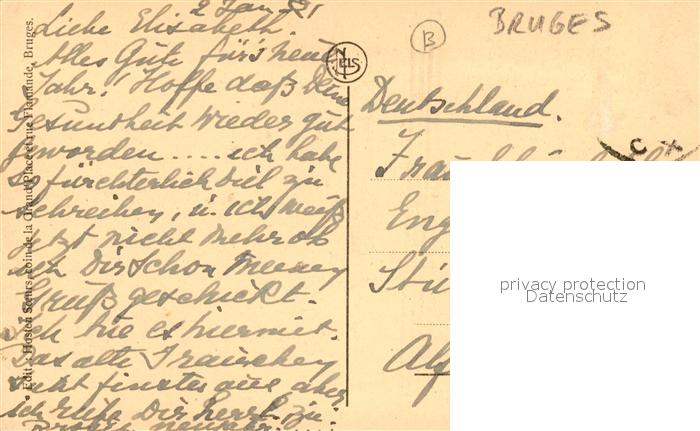 2 Jan 21
Liebe Elisabeth.
Alles Gute für's neue
Jahr! Hoffe daß Deine
Gesundheit wieder gut
geworden .... ich habe
so fürchterlich viel zu
schreiben, u. ich weiß
jetzt nicht mehr ob
ich Dir schon meinen
Gruß geschickt.
Ich tue es hiermit.
Das alte
sieht finster aus aber
ich rufe Dir herzl. zu:
Edit. Hoslet Sœurs, coin de la Grand'Place et rue Flamande, Bruges.
ELS
B
BRUGES
Deutschland.
privacy protection
Datenschutz